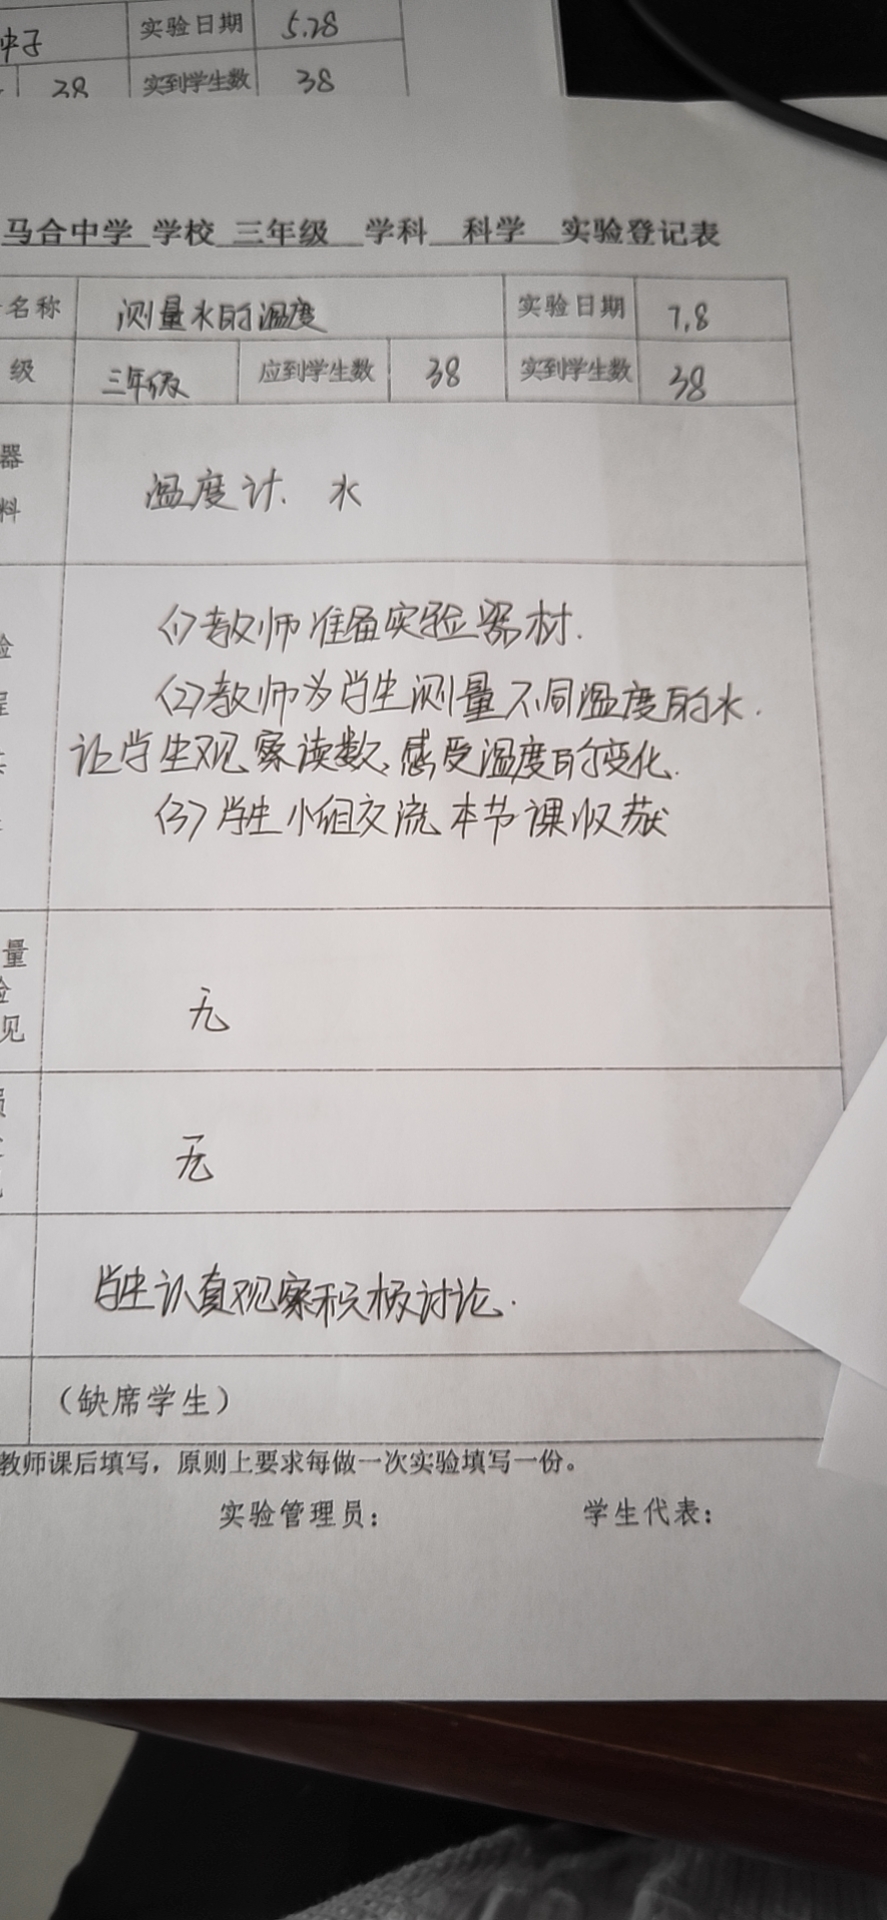 种子 实验日期 5.28
38 实到学生数 38
马合中学 学校 三年级 学科 科学 实验登记表
名称 测量水的温度 实验日期 7.8
级 三年级 应到学生数 38 实到学生数 38
器
料
温度计. 水
(1)教师准备实验器材.
验
(2)教师为学生测量不同温度的水.
程
让学生观察读数,感受温度的变化.
(3)学生小组交流本节课收获
量
验
见
无
无
学生认真观察积极讨论.
(缺席学生)
教师课后填写，原则上要求每做一次实验填写一份。
实验管理员： 学生代表：